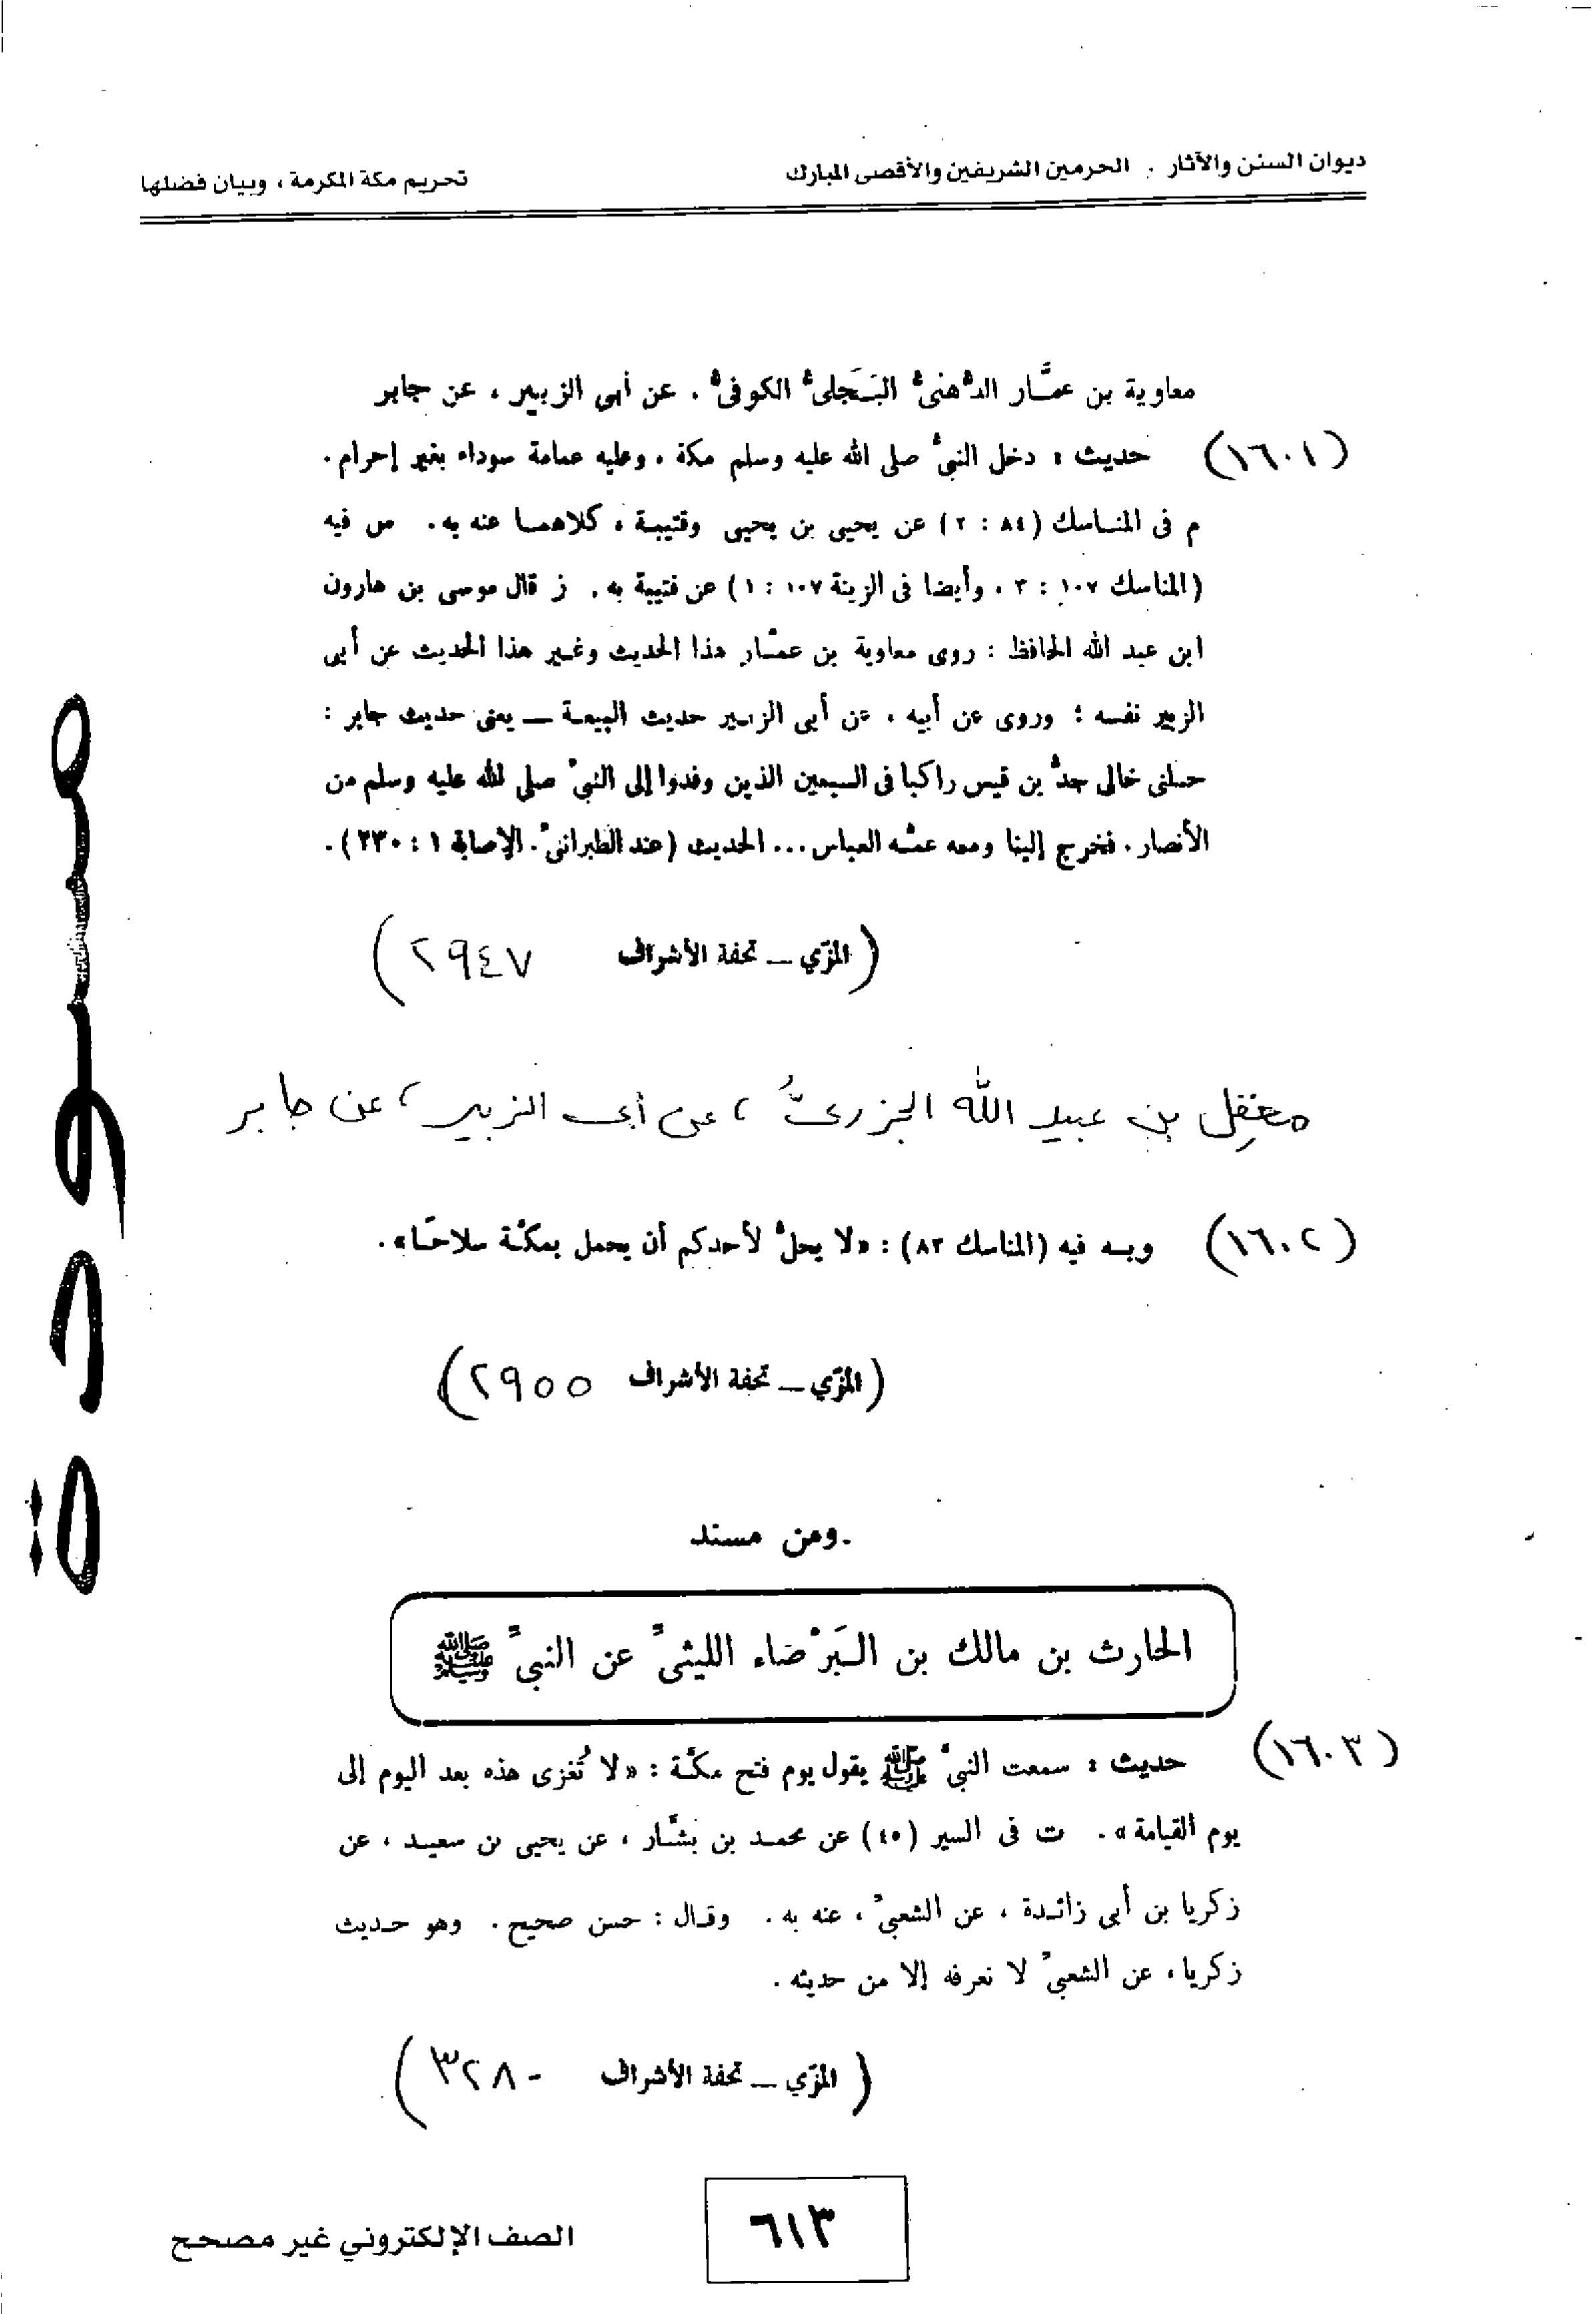 ديوان السنن والآثار . الحرمين الشريفين والأقصى المبارك
تحريم مكة المكرمة ، وبيان فضلها
معاوية بن عمَّار الدُّهنىُّ البَجَلىُّ الكوفىُّ ، عن أبى الزبير ، عن جابر
(١٦٠١) حديث : دخل النبىُّ صلى الله عليه وسلم مكة ، وعليه عمامة سوداء بغير إحرام .
م فى المناسك (٨٤ : ٢) عن يحيى بن يحيى وقتيبة ، كلاهما عنه به . س فيه
(المناسك ١٠٧ : ٣ ، وأيضا فى الزينة ١٠٧ : ١) عن قتيبة به . ز قال موسى بن هارون
ابن عبد الله الحافظ : روى معاوية بن عمَّار هذا الحديث وغير هذا الحديث عن أبى
الزبير نفسه ؛ وروى عن أبيه ، عن أبى الزبير حديث البيعة — يعنى حديث جابر :
حملنى خالى جدُّ بن قيس راكبا فى السبعين الذين وفدوا إلى النبىِّ صلى لله عليه وسلم من
الأنصار . فخرج إلينا ومعه عمُّه العباس ... الحديث (عند الطبرانىِّ . الإصابة ١ : ٢٣٠) .
(المزّي – تحفة الأشراف ٢٩٤٧)
معقِل بن عبيد الله الجزرىُّ ، عن أبى الزبير ، عن جابر
(١٦٠٢) وبه فيه (المناسك ٨٣) : «لا يحلُّ لأحدكم أن يحمل بمكَّة سلاحًا» .
(المزّي – تحفة الأشراف ٢٩٥٥)
ومن مسند
الحارث بن مالك بن البَرْصَاء الليثىِّ عن النبىِّ ﷺ
(١٦٠٣) حديث : سمعت النبىَّ ﷺ يقول يوم فتح مكَّة : «لا تُغزى هذه بعد اليوم إلى
يوم القيامة» . ت فى السير (٤٥) عن محمد بن بشَّار ، عن يحيى بن سعيد ، عن
زكريا بن أبى زائدة ، عن الشعبىِّ ، عنه به . وقال : حسن صحيح . وهو حديث
زكريا ، عن الشعبىِّ لا نعرفه إلا من حديثه .
(المزّي – تحفة الأشراف ٣٢٨٠)
٦١٣
الصف الإلكتروني غير مصحح
مسودة